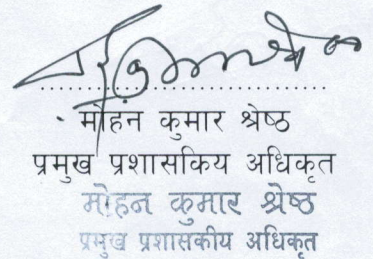 मोहन कुमार श्रेष्ठ
प्रमुख प्रशासकिय अधिकृत
मोहन कुमार श्रेष्ठ
प्रमुख प्रशासकीय अधिकृत